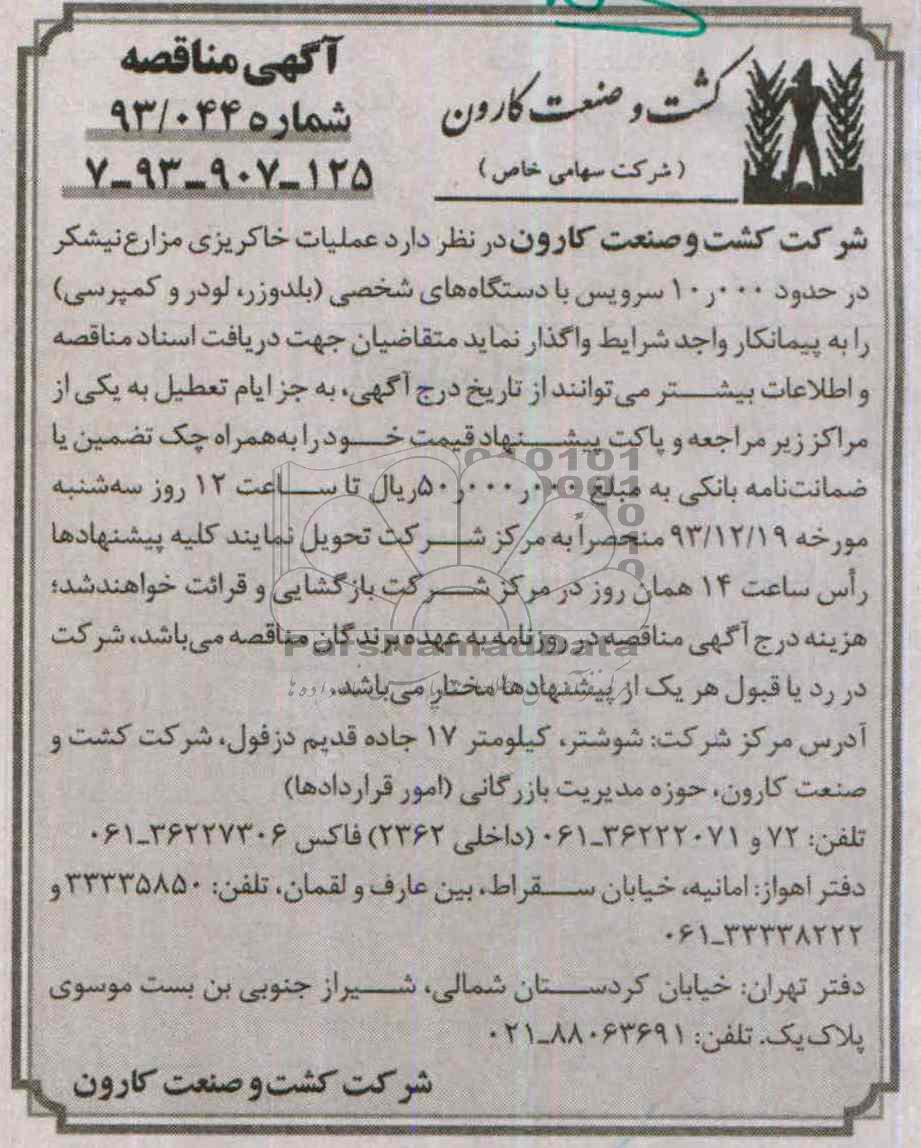 آگهی مناقصه
شماره ۹۳/۰۴۴
۷-۹۳-۹۰۷-۱۲۵
کشت و صنعت کارون
(شرکت سهامی خاص)
شرکت کشت و صنعت کارون در نظر دارد عملیات خاکریزی مزارع نیشکر
در حدود ۱۰٫۰۰۰ سرویس با دستگاه‌های شخصی (بلدوزر، لودر و کمپرسی)
را به پیمانکار واجد شرایط واگذار نماید متقاضیان جهت دریافت اسناد مناقصه
و اطلاعات بیشتر می‌توانند از تاریخ درج آگهی، به جز ایام تعطیل به یکی از
مراکز زیر مراجعه و پاکت پیشنهاد قیمت خود را به‌همراه چک تضمین یا
ضمانت‌نامه بانکی به مبلغ ۵۰٫۰۰۰٫۰۰۰ ریال تا ساعت ۱۲ روز سه‌شنبه
مورخه ۹۳/۱۲/۱۹ منحصراً به مرکز شرکت تحویل نمایند کلیه پیشنهادها
رأس ساعت ۱۴ همان روز در مرکز شرکت بازگشایی و قرائت خواهند شد؛
هزینه درج آگهی مناقصه در روزنامه به عهده برندگان مناقصه می‌باشد، شرکت
در رد یا قبول هر یک از پیشنهادها مختار می‌باشد.
آدرس مرکز شرکت: شوشتر، کیلومتر ۱۷ جاده قدیم دزفول، شرکت کشت و
صنعت کارون، حوزه مدیریت بازرگانی (امور قراردادها)
تلفن: ۷۲ و ۳۶۲۲۲۰۷۱-۰۶۱ (داخلی ۲۳۶۲) فاکس ۳۶۲۲۷۳۰۶-۰۶۱
دفتر اهواز: امانیه، خیابان سقراط، بین عارف و لقمان، تلفن: ۳۳۳۳۵۸۵۰ و
۳۳۳۳۸۲۲۲-۰۶۱
دفتر تهران: خیابان کردستان شمالی، شیراز جنوبی بن بست موسوی
پلاک یک. تلفن: ۸۸۰۶۳۶۹۱-۰۲۱
شرکت کشت و صنعت کارون
ParsNamadData